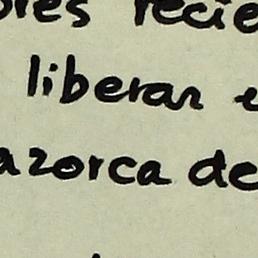 ores recie
liberar e
azorca de